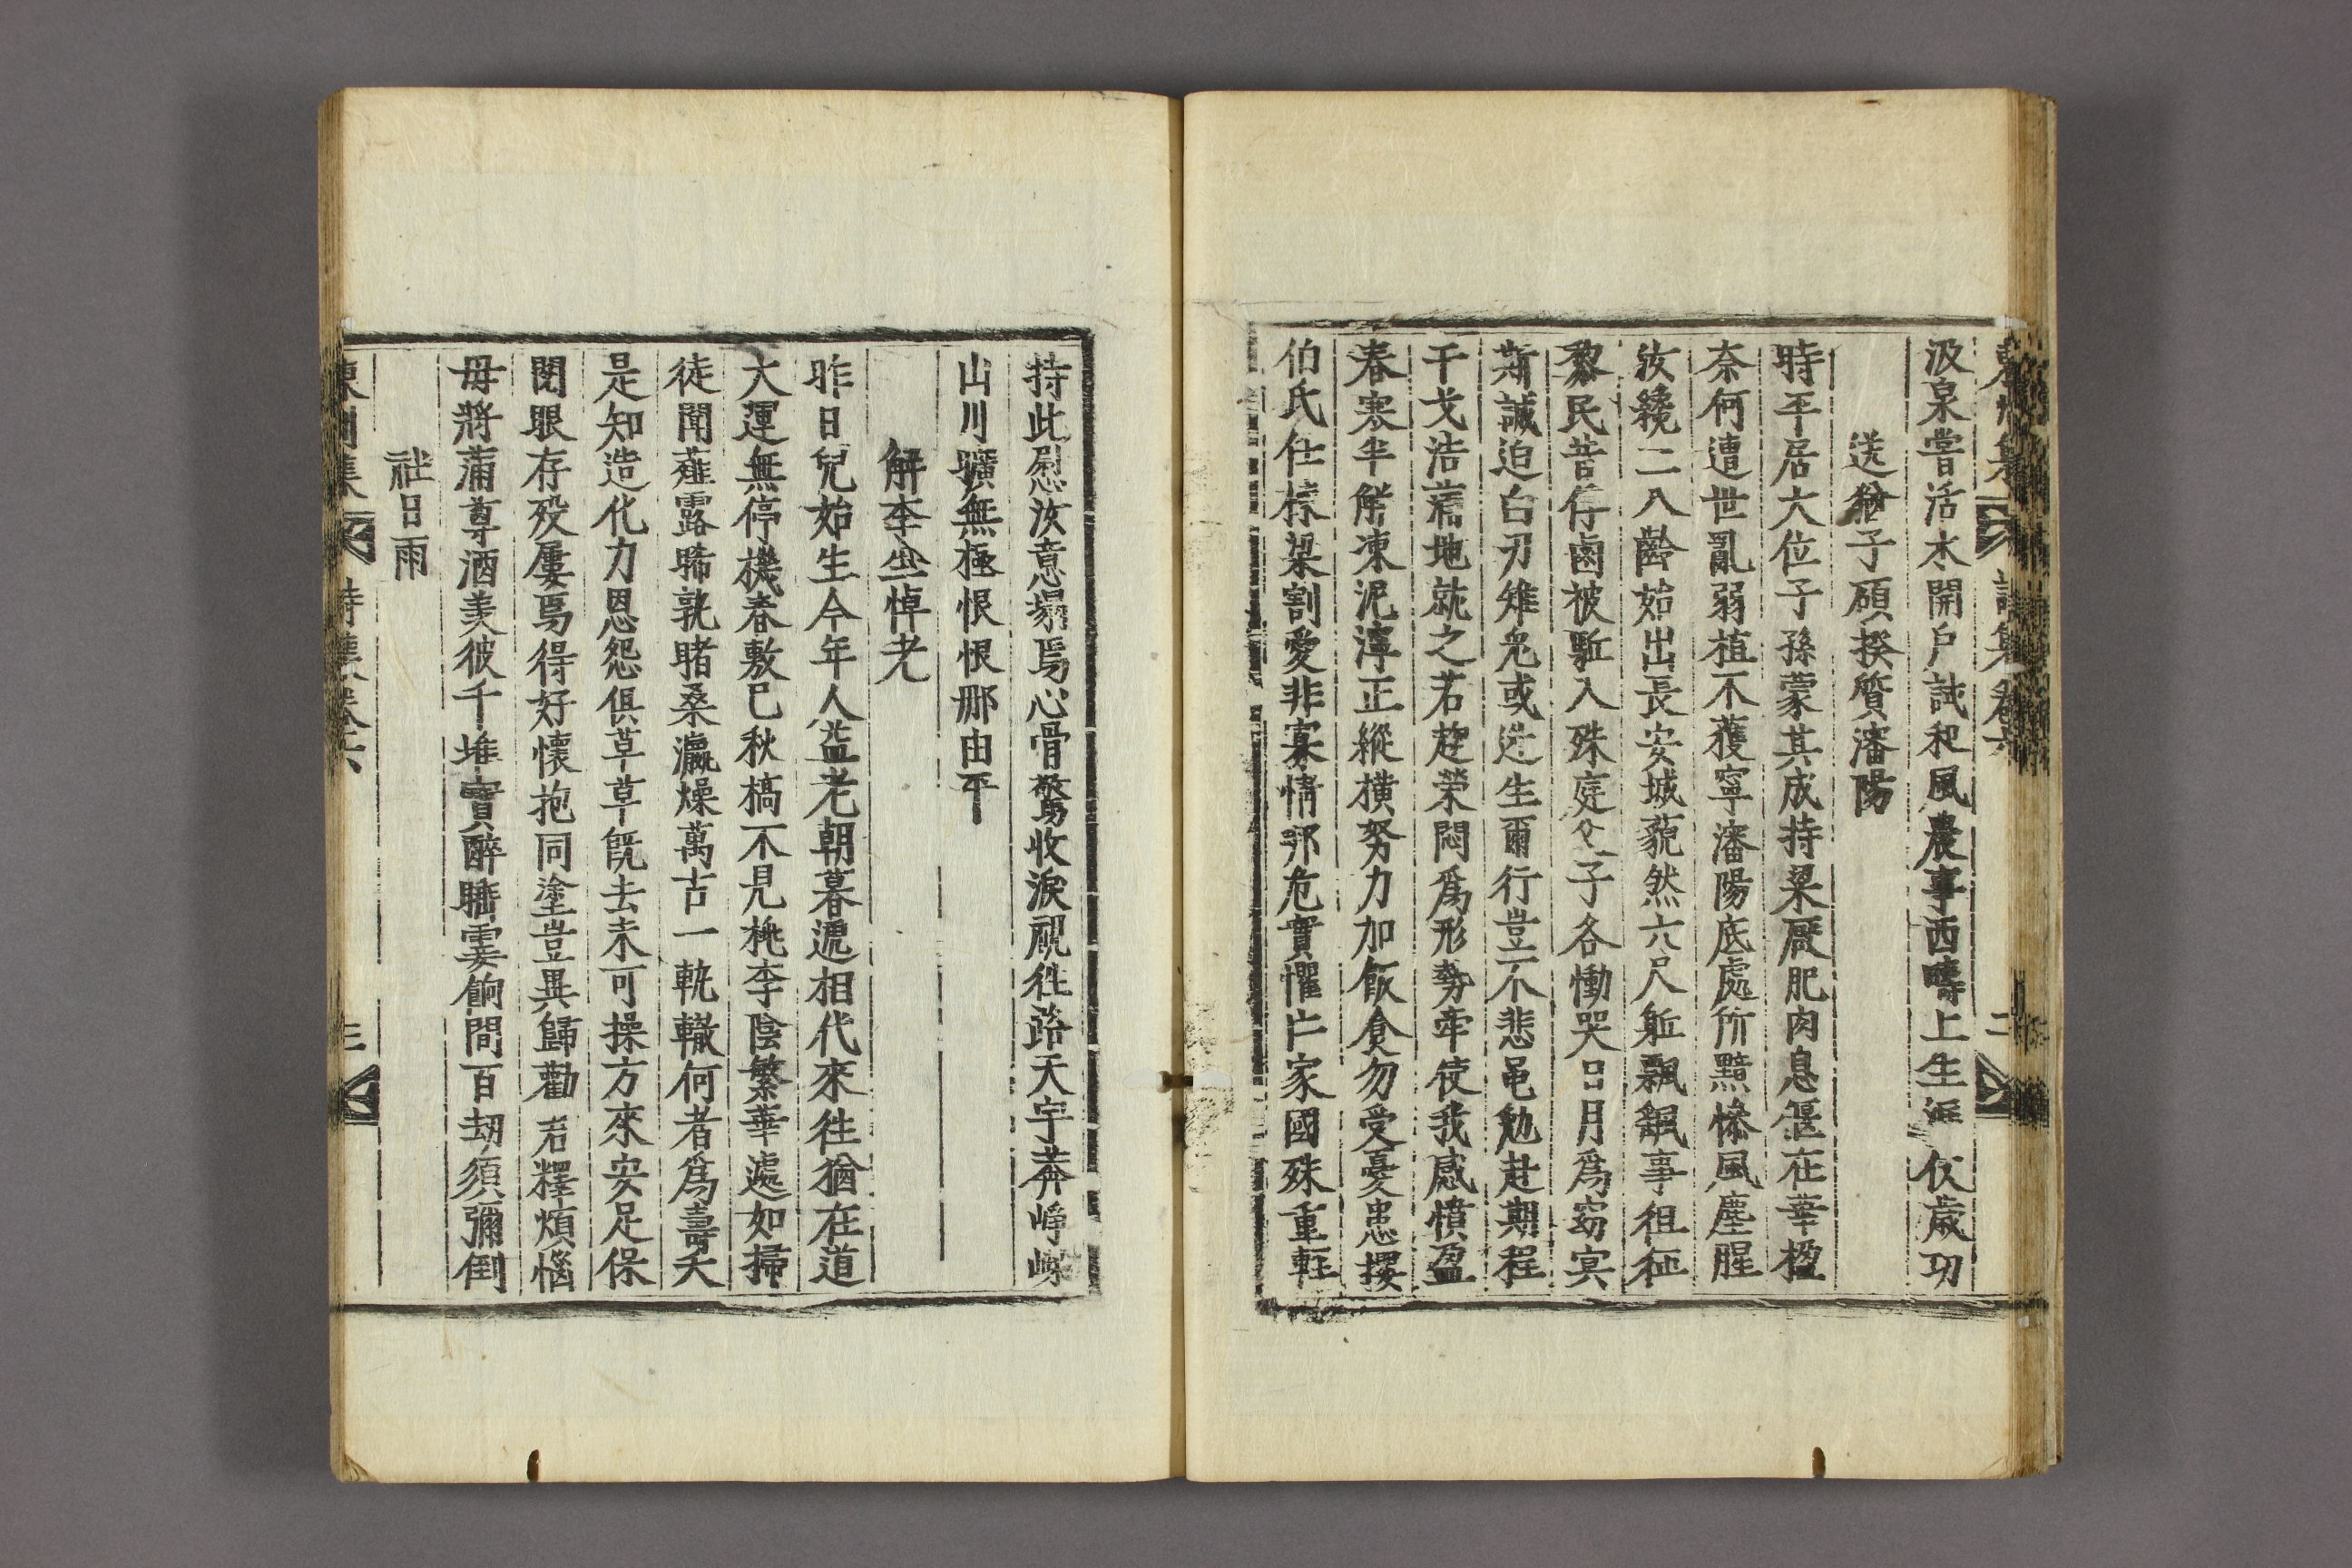 東州集 詩集卷六 二
汲泉嘗活水開戶試和風農事西疇上生涯伏歲功
送猶子碩揆質瀋陽
時平居大位子孫蒙其成持梁厭肥肉息偃在華楹
奈何遭世亂弱植不獲寧瀋陽底處所黯慘風塵腥
汝纔二八齡始出長安城藐然六尺軀飄飄事徂征
黎民昔俘鹵被驅入殊庭父子各慟哭日月爲窈冥
斯誠迫白刃雉兔或迯生爾行豈不悲黽勉赴期程
干戈浩滿地就之若趍榮悶爲形勢牽使我感憤盈
春寒半解凍泥濘正縱橫努力加飯食勿受憂患攖
伯氏仕棕梁割愛非寡情鄂危實懼亡家國殊重輕
持此慰汝意塌焉心骨驚收淚視徃路天宇莽崢嶸
山川曠無極恨恨那由平
解李生悼老
昨日兒始生今年人益老朝暮遞相代來徃猶在道
大運無停機春敷已秋槁不見桃李陰繁華遽如掃
徒聞薤露晞孰睹桑瀛燥萬古一軌轍何者爲壽夭
是知造化力恩怨俱草草旣去未可操方來安足保
閱眼存歿屢焉得好懷抱同塗豈異歸勸君釋煩惱
毋將蒲尊酒羡彼千堆寶醉臥霎餉間百劫須彌倒
社日雨
東州集 詩集卷六 三